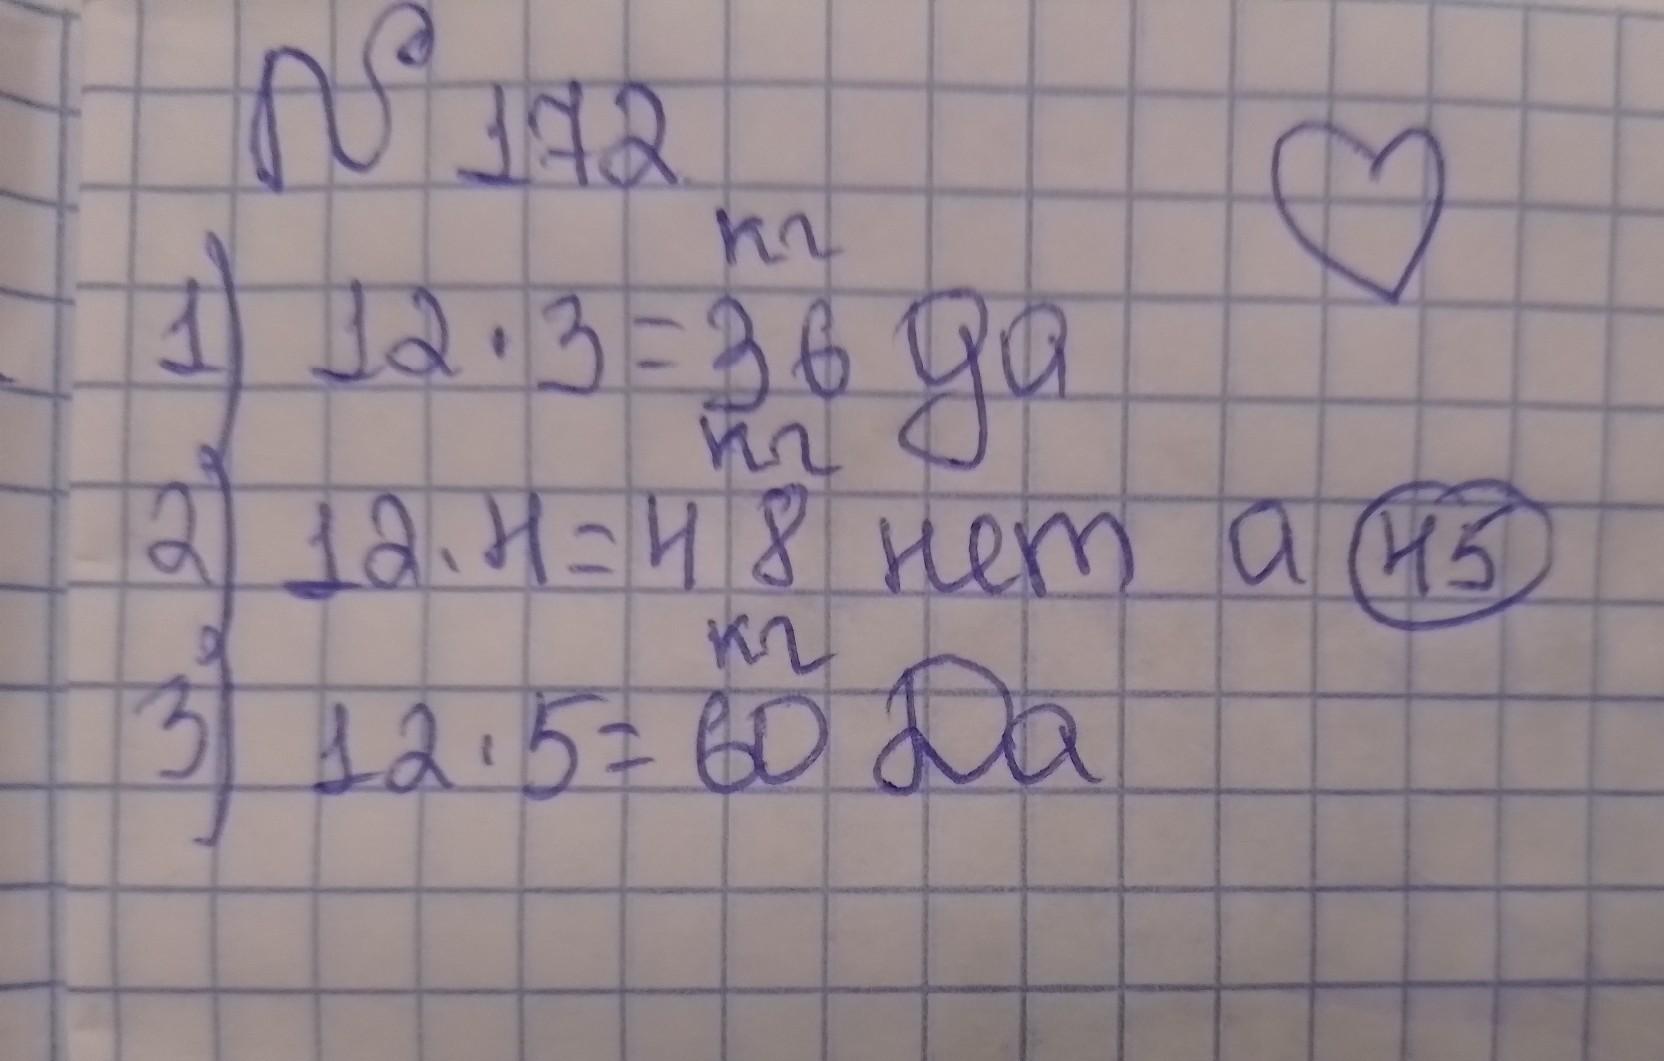 № 172
кг
1) 12 · 3 = 36 да
кг
2) 12 · 4 = 48 нет а 45
кг
3) 12 · 5 = 60 Да